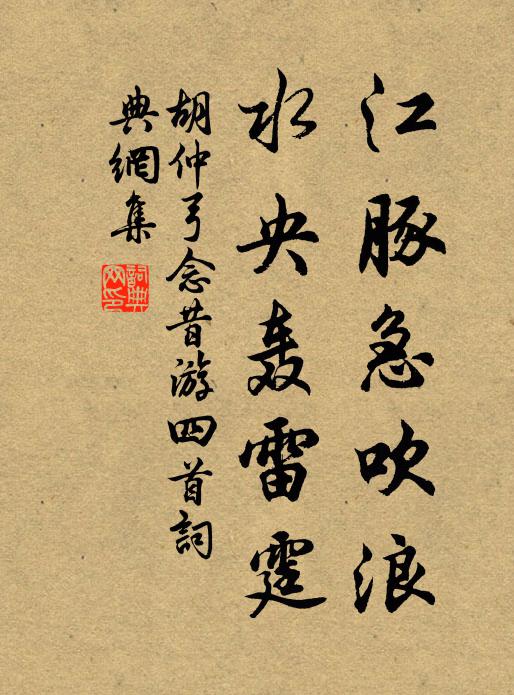 江豚急吹浪
水央轰雷霆
胡仲弓念昔游四首詞
典網集
詞典
网印